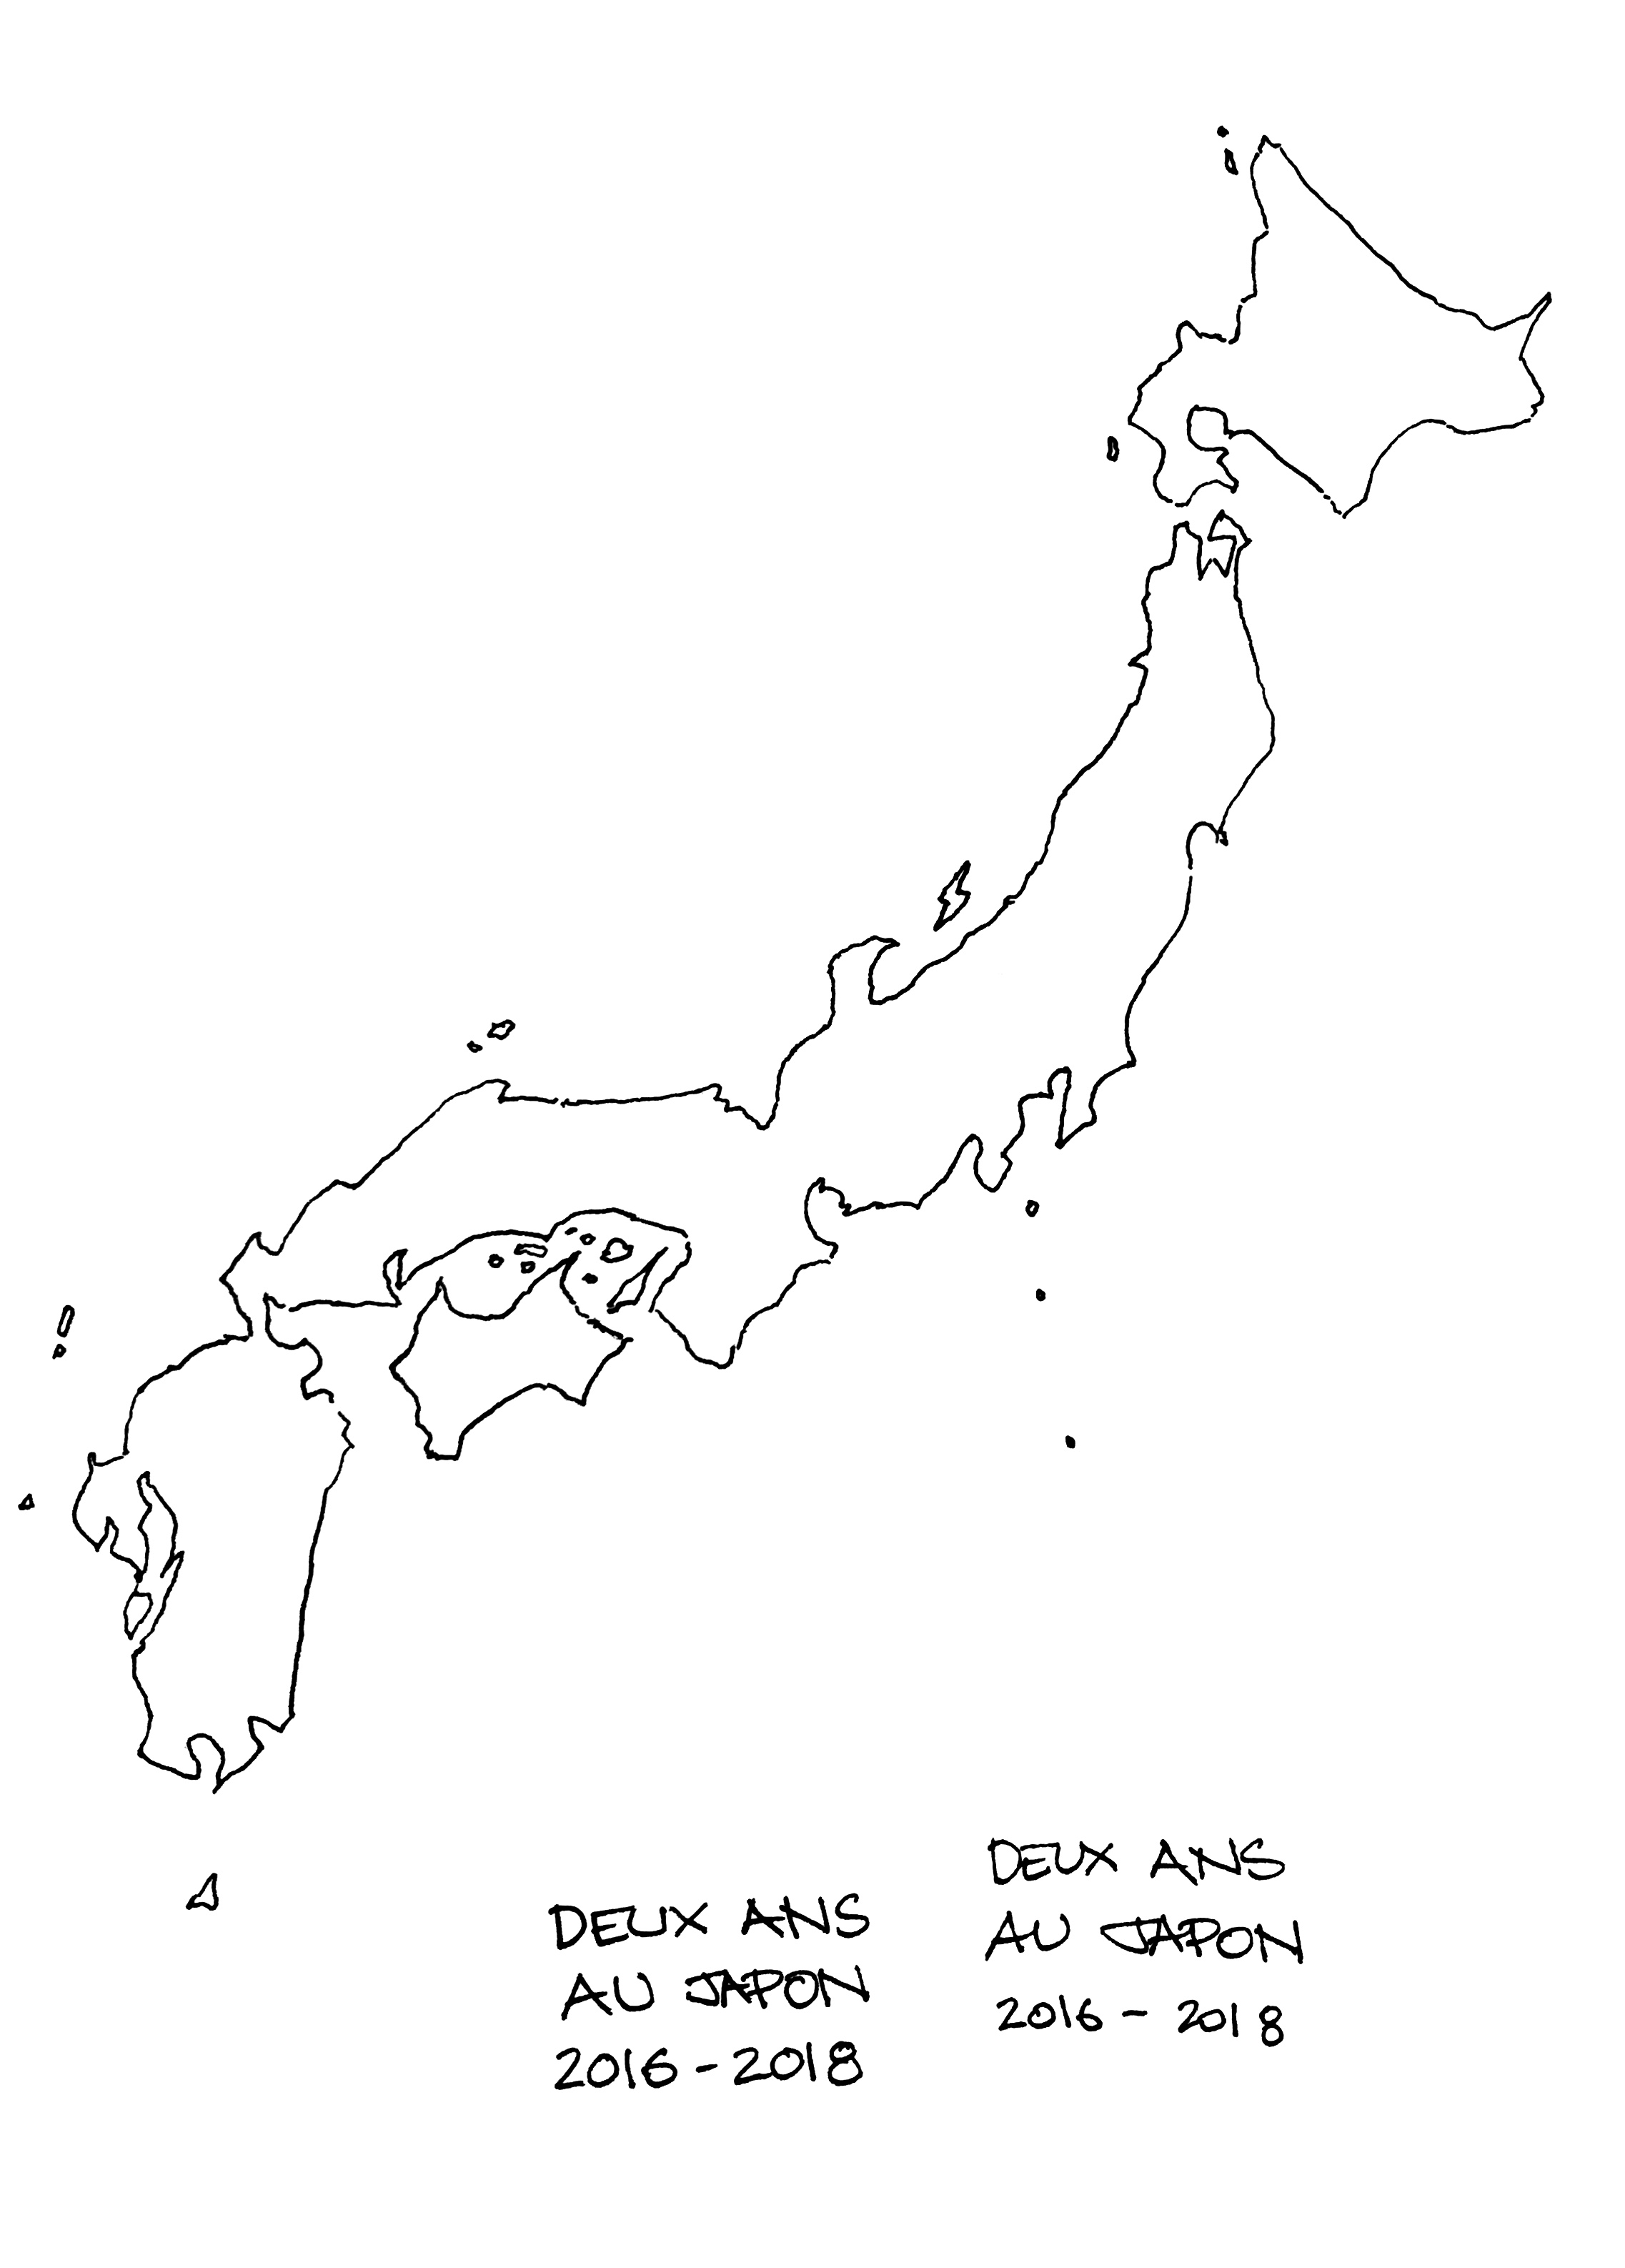 DEUX ANS
AU JAPON
2016-2018
DEUX ANS
AU JAPON
2016-2018